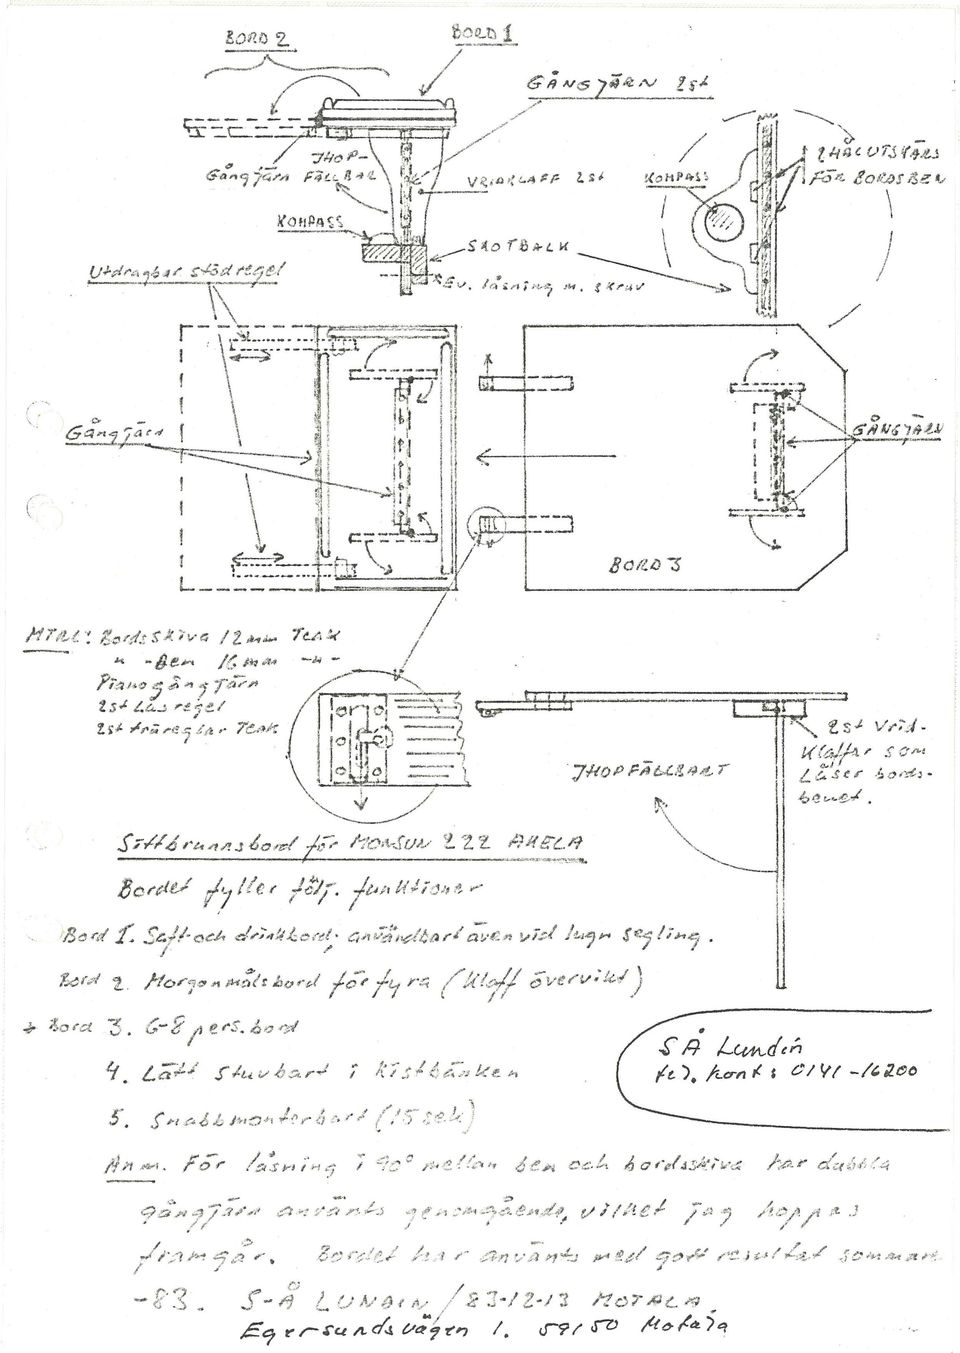 BORD 2
BORD 1
GÅNGJÄRN 2st
Gångjärn
IHOP-
FÄLLBAR
VRIDKLAFF 2st
KOMPASS
KOMPASS
2 HÅLUTSKÄRS
FÖR BORDSBEN
SKOTBALK
Ev. låsning m. skruv
Utdragbar stödregel
Gångjärn
GÅNGJÄRN
BORD 3
MTRL: Bordsskiva 12mm Teak
" -Ben 16 mm -"-
Pianogångjärn
2st Låsregel
2st träreglar Teak
IHOPFÄLLBART
2st Vrid-
klaffar som
Låser bords-
benet.
Sittbrunnsbord för MONSUN 222 AKELA
Bordet fyller följ. funktioner
Bord 1. Saft- och drinkbord; användbart även vid lugn segling.
Bord 2. Morgonmålsbord för fyra (Klaff övervikt)
+ Bord 3. 6-8 pers. bord
4. Lätt stuvbart i kistbänken
5. Snabbmonterbart (15 sek)
SÅ Lundin
tel. kont: 0141-16200
Anm. För låsning i 90° mellan ben och bordsskiva har dubbla
gångjärn använts genomgående, vilket jag hoppas
framgår. Bordet har använts med gott resultat sommaren
-83. S-Å LUNDIN / 83-12-13 MOTALA.
Egersundsvägen 1. 591 50 Motala